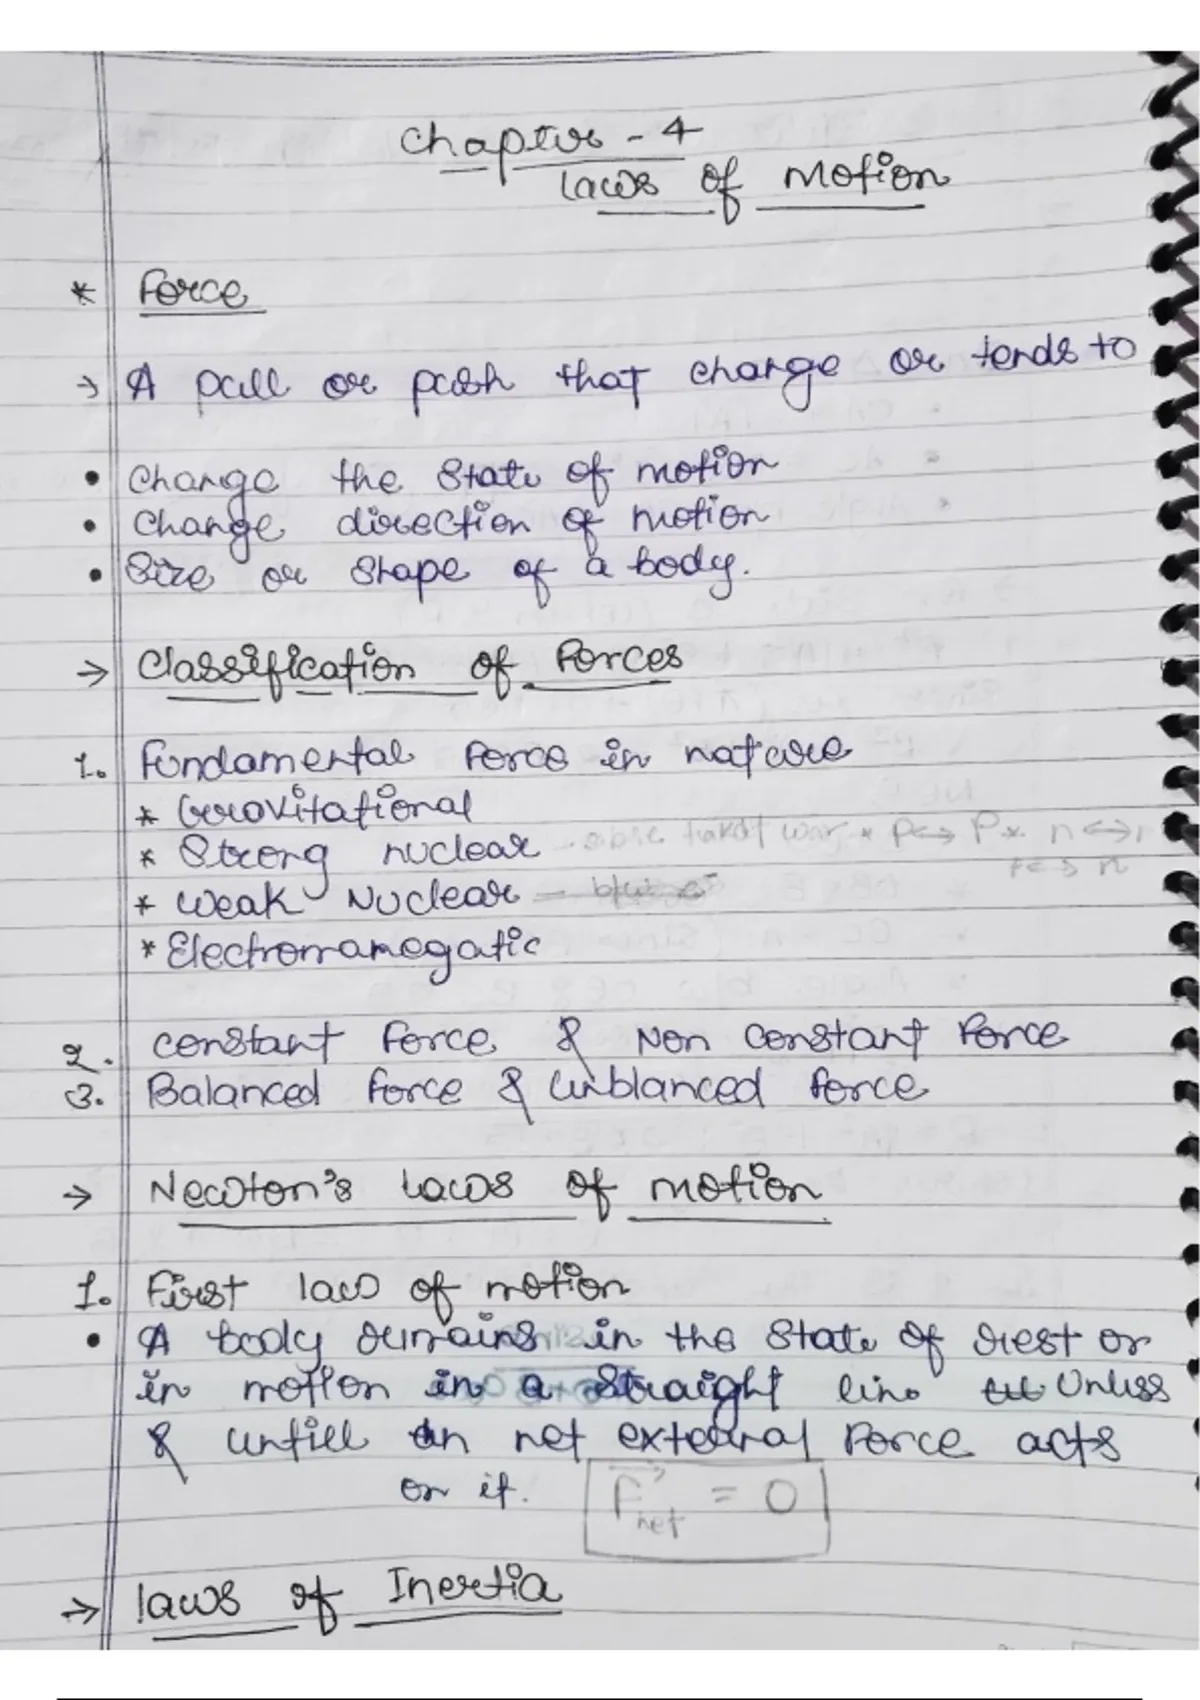 Chapter - 4
Laws of Motion
* Force
→ A pull or push that change or tends to
• Change the State of motion
• Change direction of motion
• Size or Shape of a body.
→ Classification of Forces
1. Fundamental Force in nature
* Gravitational
* Strong nuclear
* Weak Nuclear
* Electromamegatic
2. Constant Force & Non Constant Force
3. Balanced Force & Unblanced Force
→ Newton's Laws of motion
1. First law of motion
• A body remains in the State of rest or
in motion in a Straight line Unless
& untill an net external Force acts
on it. F⃗net = 0
→ Laws of Inertia